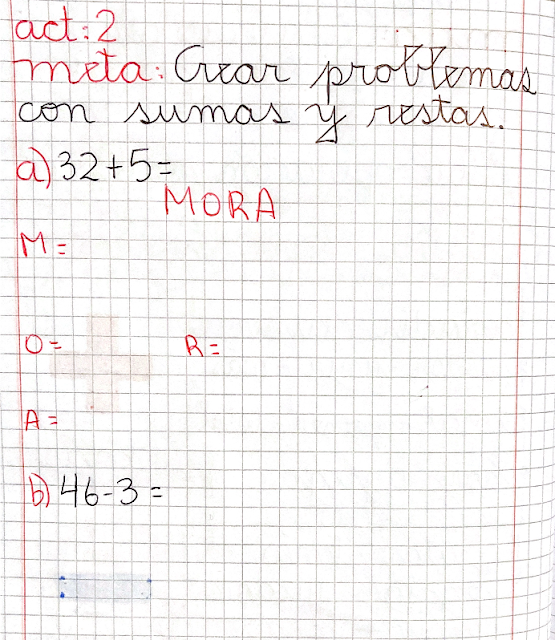 act: 2
meta: Crear problemas
con sumas y restas.
a) 32+5=
MORA
M=
O= R=
A=
b) 46-3=